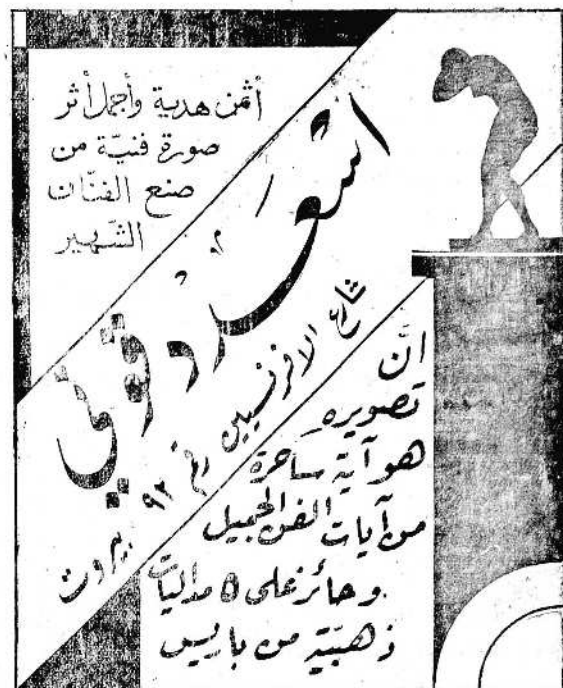 أثمن هدية وأجمل أثر
صورة فنيّة من
صنع الفنّان
الشّهير
اسعد دقوني
شارع الافرنسيين رقم ٩٢ بيروت
انّ
تصويره
هو آية ساحرة
من آيات الفن الجميل
وحائز على ٥ مداليات
ذهبيّة من باريس